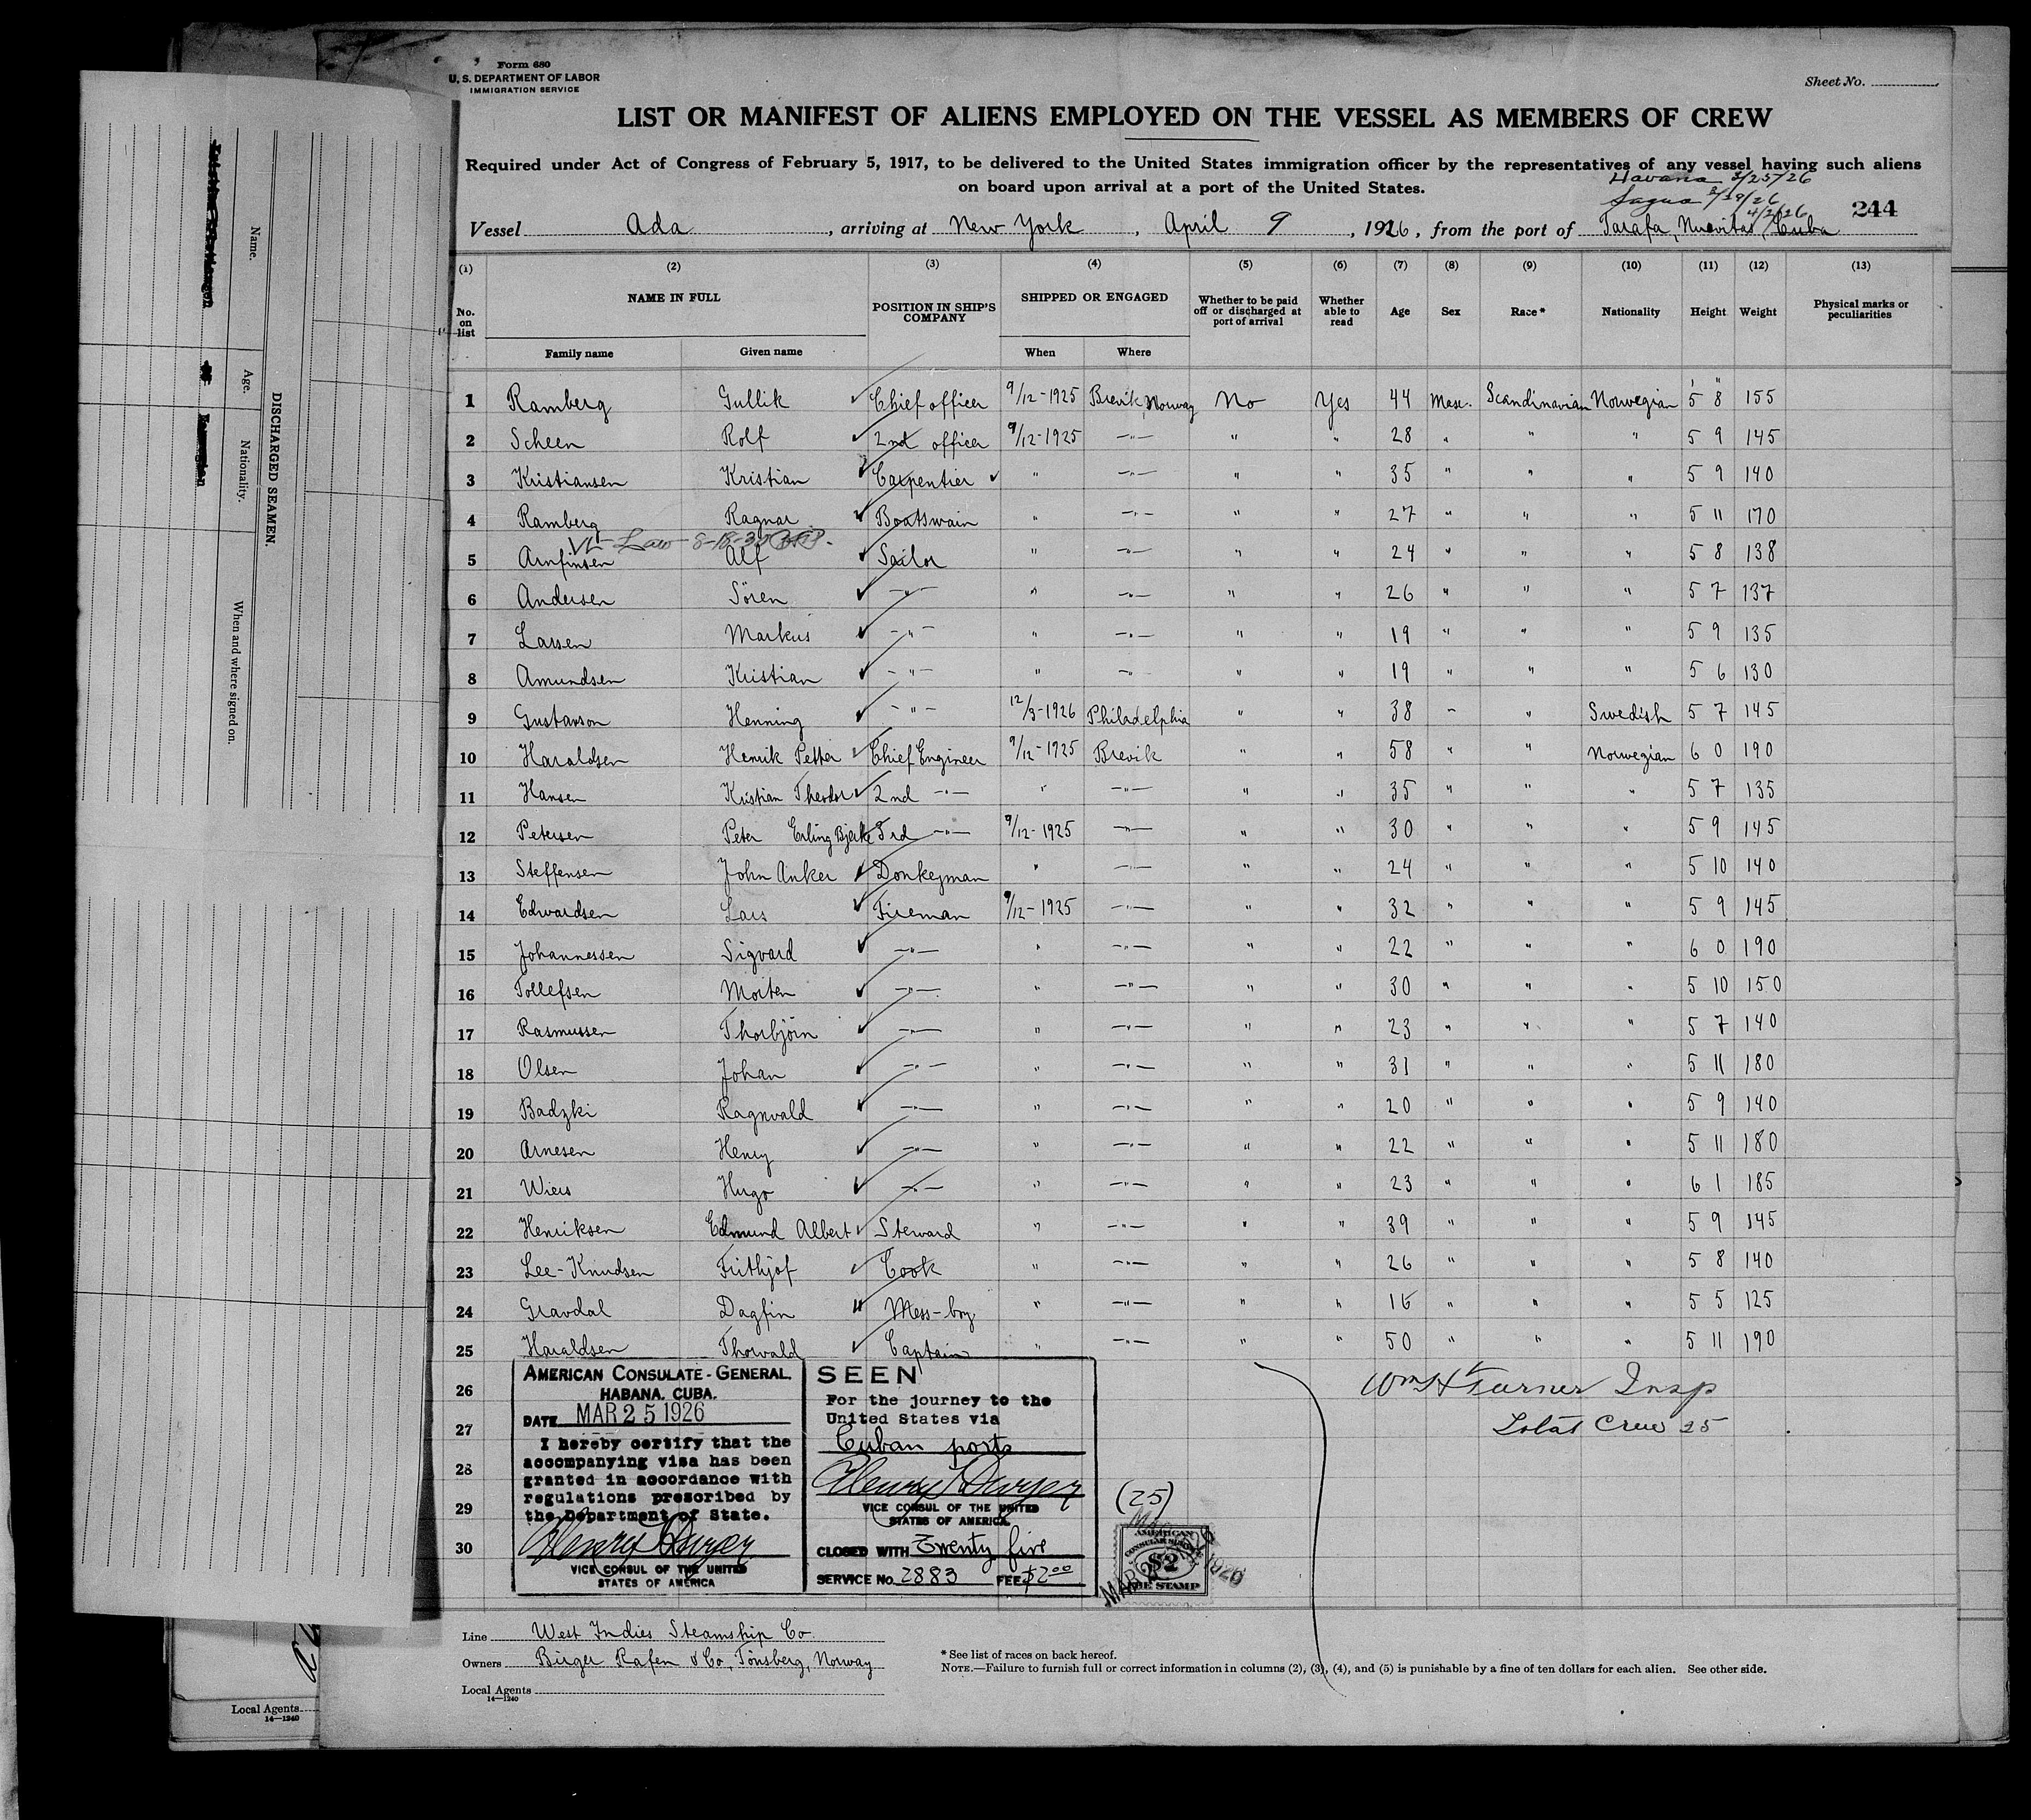 Form 680
U. S. DEPARTMENT OF LABOR
IMMIGRATION SERVICE
Sheet No.
LIST OR MANIFEST OF ALIENS EMPLOYED ON THE VESSEL AS MEMBERS OF CREW
Required under Act of Congress of February 5, 1917, to be delivered to the United States immigration officer by the representatives of any vessel having such aliens
on board upon arrival at a port of the United States.
Havana 3/25/26
Sagua 3/29/26
4/2/26
244
Vessel Ada, arriving at New York, April 9, 1926, from the port of Tarafa, Nuevitas, Cuba
(1) (2) (3) (4) (5) (6) (7) (8) (9) (10) (11) (12) (13)
No. on list NAME IN FULL POSITION IN SHIP'S COMPANY SHIPPED OR ENGAGED Whether to be paid off or discharged at port of arrival Whether able to read Age Sex Race* Nationality Height Weight Physical marks or peculiarities
Family name Given name When Where
1 Ramberg Gullik Chief officer 9/12-1925 Brevik, Norway No Yes 44 Masc. Scandinavian Norwegian 5' 8" 155
2 Scheen Rolf 2nd officer 9/12-1925 —"— " " 28 " " " 5 9 145
3 Kristiansen Kristian Carpentier " —"— " " 35 " " " 5 9 140
4 Ramberg Ragnar Boatswain " —"— " " 27 " " " 5 11 170
5 Arnfinsen Alf Sailor " —"— " " 24 " " " 5 8 138
6 Andersen Sören —"— " —"— " " 26 " " " 5 7 137
7 Larsen Markus —"— " —"— " " 19 " " " 5 9 135
8 Amundsen Kristian —"— " —"— " " 19 " " " 5 6 130
9 Gustavson Henning —"— 12/3-1926 Philadelphia " " 38 " " Swedish 5 7 145
10 Haraldsen Henrik Petter Chief Engineer 9/12-1925 Brevik " " 58 " " Norwegian 6 0 190
11 Hansen Kristian Theodor 2nd —"— " —"— " " 35 " " " 5 7 135
12 Petersen Peter Erling Bjerke 3rd —"— 9/12-1925 —"— " " 30 " " " 5 9 145
13 Steffensen John Anker Donkeyman " —"— " " 24 " " " 5 10 140
14 Edwardsen Lars Fireman 9/12-1925 —"— " " 32 " " " 5 9 145
15 Johannessen Sigvard —"— " —"— " " 22 " " " 6 0 190
16 Tollefsen Morten —"— " —"— " " 30 " " " 5 10 150
17 Rasmussen Thorbjörn —"— " —"— " " 23 " " " 5 7 140
18 Olsen Johan —"— " —"— " " 31 " " " 5 11 180
19 Badzki Ragnvald —"— " —"— " " 20 " " " 5 9 140
20 Arnesen Henry —"— " —"— " " 22 " " " 5 11 180
21 Wiers Hugo —"— " —"— " " 23 " " " 6 1 185
22 Henriksen Edmund Albert Steward " —"— " " 39 " " " 5 9 145
23 Lee-Knudsen Frithjof Cook " —"— " " 26 " " " 5 8 140
24 Gravdal Dagfin Mess-boy " —"— " " 16 " " " 5 5 125
25 Haraldsen Thorvald Captain " —"— " " 50 " " " 5 11 190
26
27
28
29
30
AMERICAN CONSULATE-GENERAL,
HABANA, CUBA.
DATE MAR 25 1926
I hereby certify that the
accompanying visa has been
granted in accordance with
regulations prescribed by
the Department of State.
VICE CONSUL OF THE UNITED
STATES OF AMERICA
SEEN
For the journey to the
United States via
Cuban ports
VICE CONSUL OF THE UNITED
STATES OF AMERICA
CLOSED WITH Twenty five
SERVICE No. 2883 FEE $2.00
(25)
AMERICAN
CONSULAR SERVICE
$2
FEE STAMP
Wm H Turner Insp
Total Crew 25
Line West Indies Steamship Co.
Owners Birger Rafen & Co, Tönsberg, Norway
Local Agents
14—1240
* See list of races on back hereof.
NOTE.—Failure to furnish full or correct information in columns (2), (3), (4), and (5) is punishable by a fine of ten dollars for each alien. See other side.
DISCHARGED SEAMEN.
Name. Age. Nationality. When and where signed on.
Local Agents
14—1240